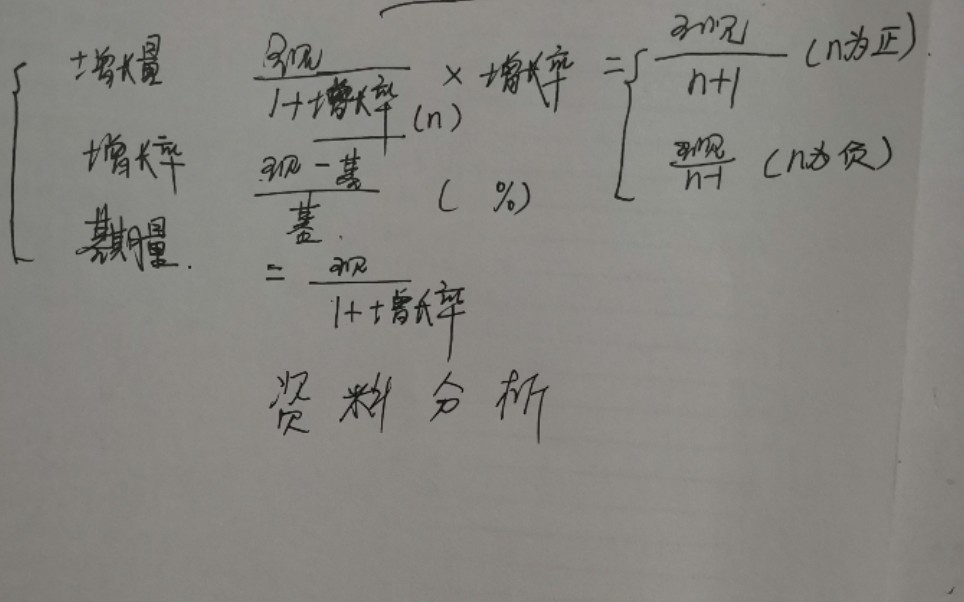 增长量 现/(1+增长率) × 增长率 = { 现/(n+1) (n为正).
(n)
现/(n-1) (n为负)
增长率 (现-基)/基. ( %)
基期量. = 现/(1+增长率)
资料分析